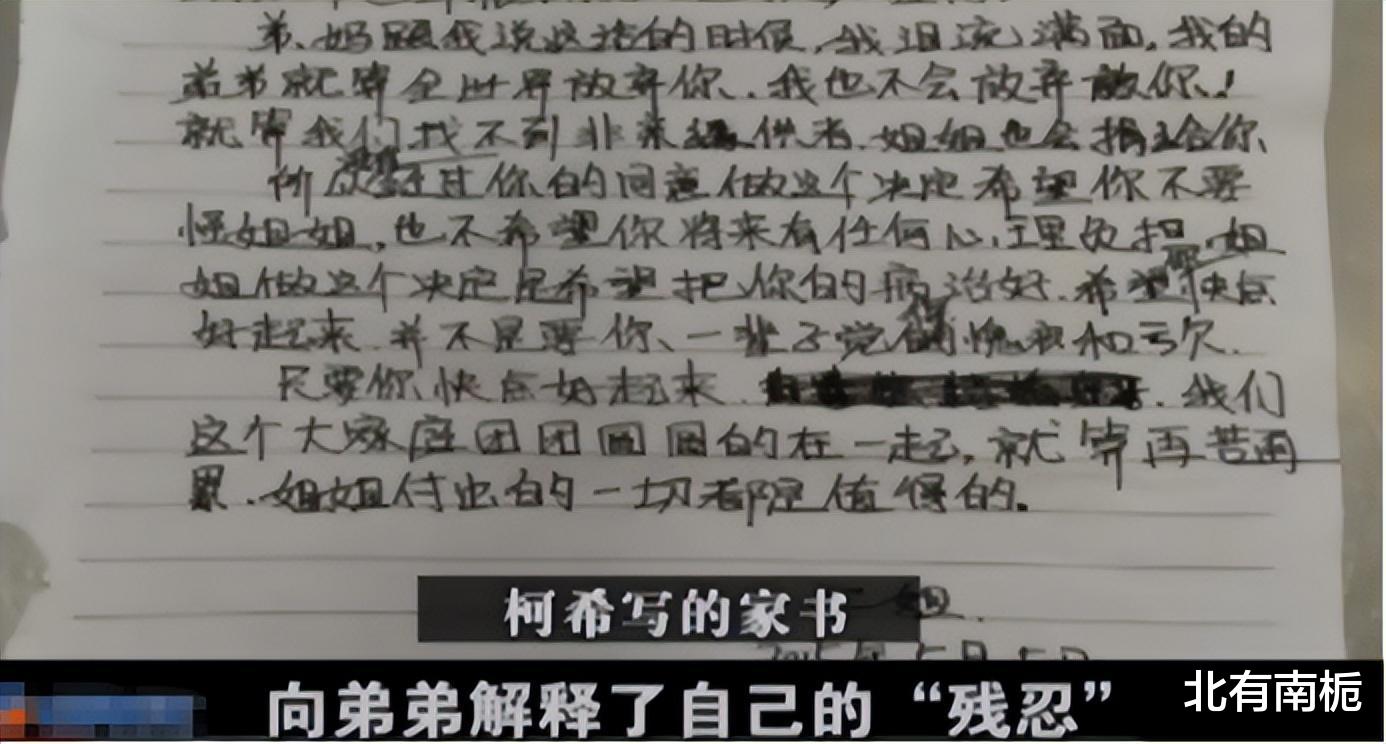 弟、妈跟我说这话的时候,我泪流满面,我的
弟弟就算全世界放弃你、我也不会放弃你!
就算我们找不到非亲供者、姐姐也会捐给你、
所以没经过你的同意做这个决定希望你不要
怪姐姐,也不希望你将来有任何心理负担,姐
姐做这个决定是希望把你的病治好、希望快点
好起来、并不是要你、一辈子觉得愧疚和亏欠、
只要你快点好起来、我们
这个大家庭团团圆圆的在一起,就算再苦再
累、姐姐付出的一切都是值得的。
柯希写的家书
向弟弟解释了自己的“残忍”
北有南栀